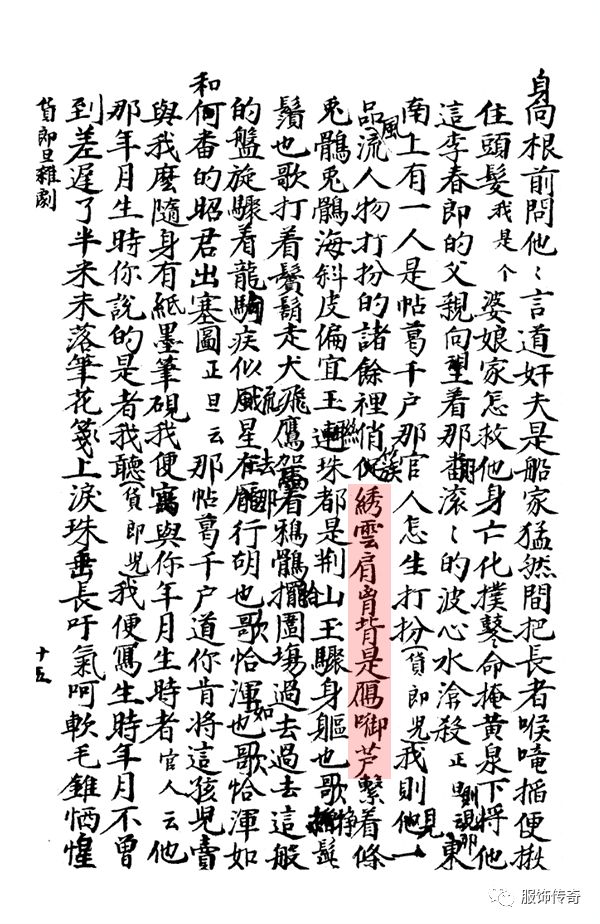 身向根前問他〻言道奸夫是船家猛然間把長者喉嚨搯便揪
住頭髮我是个婆娘家怎救他身亡化撲鼕命掩黃泉下將他
這李春郎的父親向着那翻滚〻的波心水渰殺正旦東
南上有一人是帖葛千户那官人怎生打扮貨郎児我則見他一
品風流人物打扮的諸餘裡俏簇綉雲肩胷背是鴈啣芦繫着條
兎鶻兎鶻海斜皮偏宜玉連珠都是荆山玉驟身軀也歌鬃
鬚也歌打着鬢鬍走犬飛鷹架着鴉鶻擺圍塲過去過去這般
的盤旋驟着龍駒疾似流星那行胡也歌恰渾如也歌恰渾如
和何番的昭君出塞圖正旦云那帖葛千户道你肯將這孩児賣
與我麽隨身有紙墨筆硯我便寫與你年月生時者官人云他
那年月生時你說的是者我聽貨郎児我便寫生時年月不曾
到差遲了半米未落筆花箋上淚珠垂長吁氣呵軟毛錐恓惶
貨郎旦雜劇
十五
服饰传奇